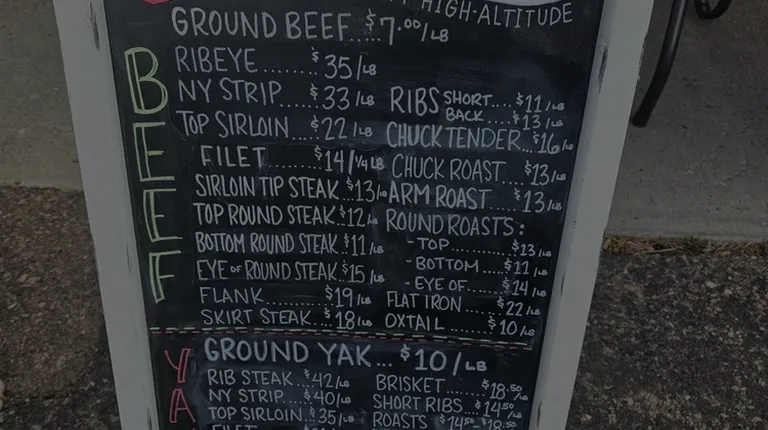 HIGH-ALTITUDE
GROUND BEEF...$7.00/LB
BEEF
RIBEYE ......$35/LB
NY STRIP.....$33/LB
TOP SIRLOIN.....$22/LB
FILET ......$14/1/4 LB
SIRLOIN TIP STEAK.$13/LB
TOP ROUND STEAK.$12/LB
BOTTOM ROUND STEAK.$11/LB
EYE OF ROUND STEAK..$15/LB
FLANK............$19/LB
SKIRT STEAK..$18/LB
RIBS SHORT....$11/LB
BACK.....$13/LB
CHUCK TENDER...$16/LB
CHUCK ROAST....$13/LB
ARM ROAST....$13/LB
ROUND ROASTS:
-TOP..........$13/LB
-BOTTOM....$11/LB
-EYE OF.....$14/LB
FLAT IRON......$22/LB
OXTAIL......$10/LB
YA
GROUND YAK...$10/LB
RIB STEAK...$42/LB
NY STRIP....$40/LB
TOP SIRLOIN...$35/LB
BRISKET.....$18.50/LB
SHORT RIBS..$14.50/LB
ROASTS $14.50-$18.50
FILET